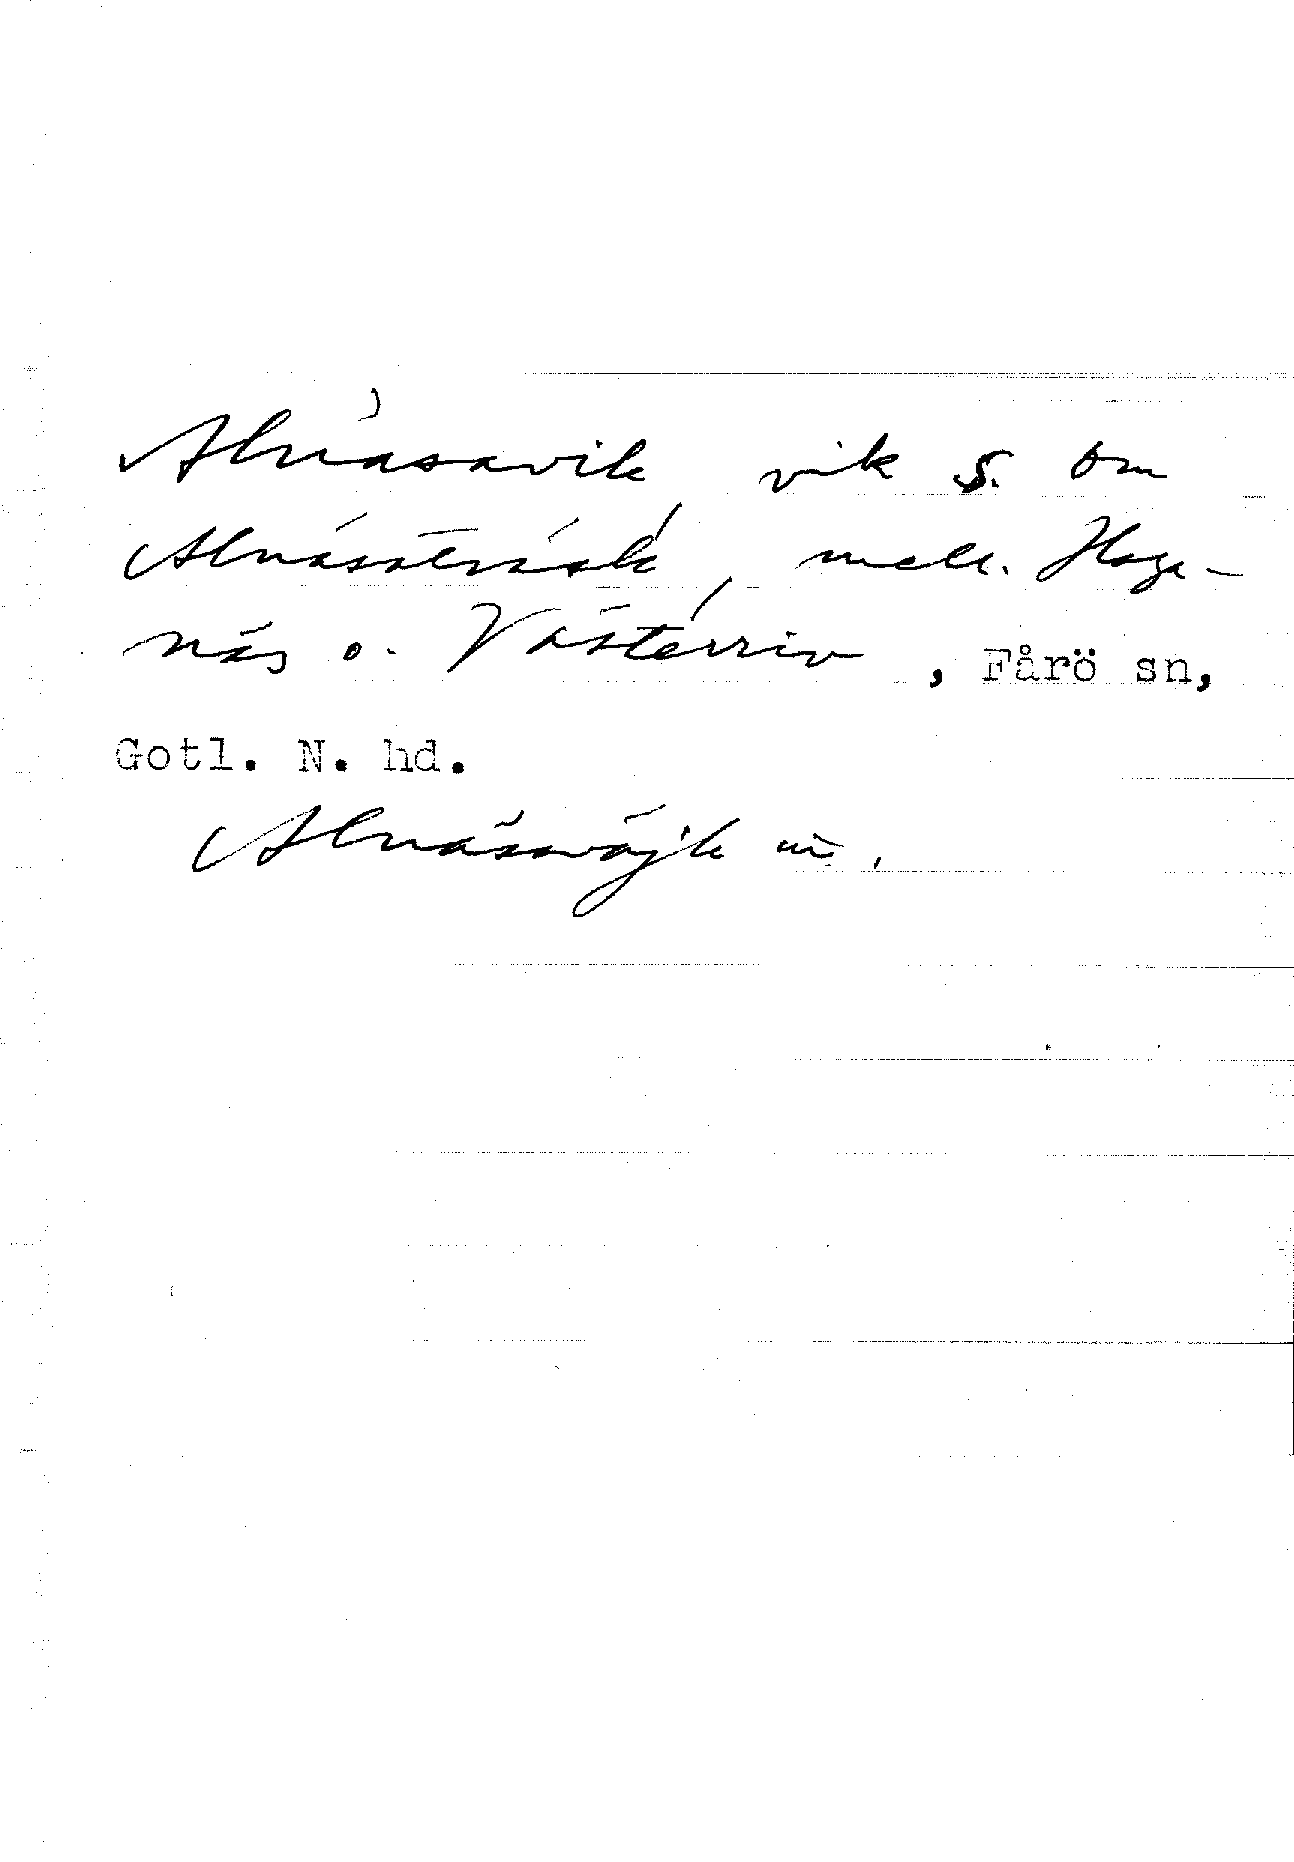 Alnäsavik, vik S. om
Alnäsaträsk, mell. Haga-
näs o. Västerriv, Fårö sn,
Gotl. N. hd.
Alnäsaväjk m.